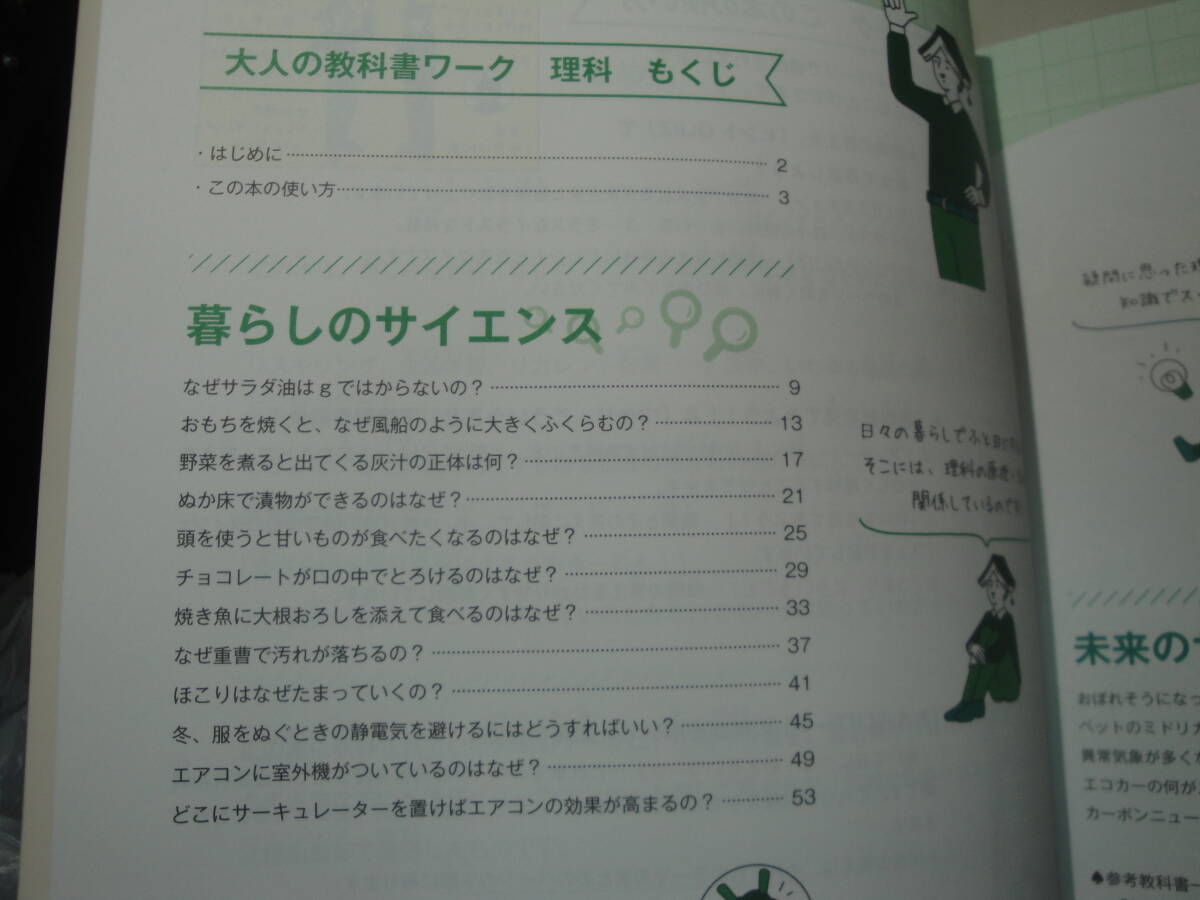 大人の教科書ワーク 理科 もくじ
・はじめに 2
・この本の使い方 3
暮らしのサイエンス
なぜサラダ油はgではからないの？ 9
おもちを焼くと、なぜ風船のように大きくふくらむの？ 13
野菜を煮ると出てくる灰汁の正体は何？ 17
ぬか床で漬物ができるのはなぜ？ 21
頭を使うと甘いものが食べたくなるのはなぜ？ 25
チョコレートが口の中でとろけるのはなぜ？ 29
焼き魚に大根おろしを添えて食べるのはなぜ？ 33
なぜ重曹で汚れが落ちるの？ 37
ほこりはなぜたまっていくの？ 41
冬、服をぬぐときの静電気を避けるにはどうすればいい？ 45
エアコンに室外機がついているのはなぜ？ 49
どこにサーキュレーターを置けばエアコンの効果が高まるの？ 53
日々の暮らしでふと
そこには、理科の
関係しているのです
疑問に思った
知識でス
未来の
おぼれそうになっ
ペットのミドリガ
異常気象が多くな
エコカーの何が
カーボンニュー
♠参考教科書一